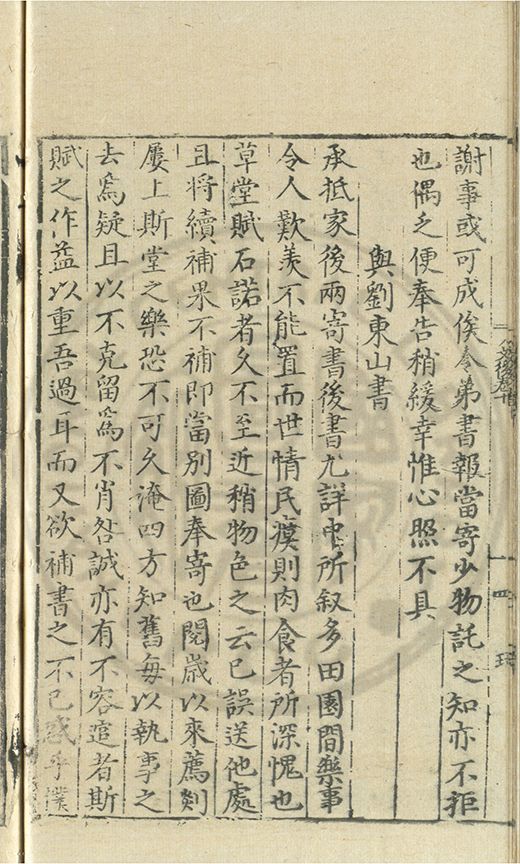 謝事或可成俟令弟書報當寄少物託之知亦不拒
也偶乏便奉告稍緩幸惟心照不具
與劉東山書
承抵家後兩寄書後書尤詳中所叙多田園間樂事
令人歎羨不能置而世情民瘼則肉食者所深愧也
草堂賦石諾者久不至近稍物色之云已誤送他處
且将續補果不補即當別圖奉寄也閱歲以來薦剡
屢上斯堂之樂恐不可久淹四方知舊每以執事之
去爲疑且以不克留爲不肖咎誠亦有不容逭者斯
賦之作益以重吾過耳而又欲補書之不已惑乎濮
四